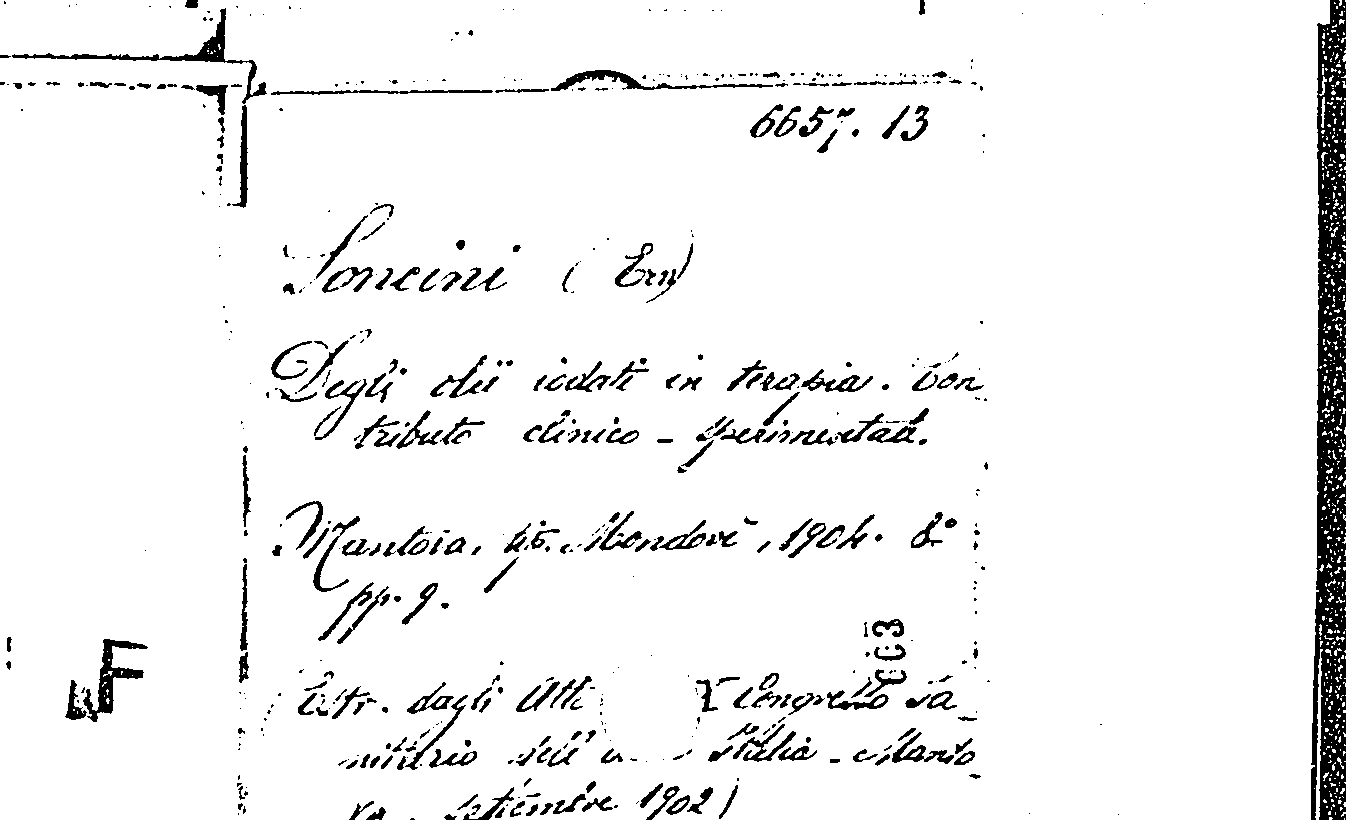 6657. 13
Soncini (Ern)
Degli olii iodati in terapia. Con
tributo clinico - sperimentale.
Mantova, tip. Mondovì, 1904. 8°
pp. 9.
Estr. dagli Atti X Congresso Sa_
nitario dell' Italia - Manto
va. Settembre 1902)
F